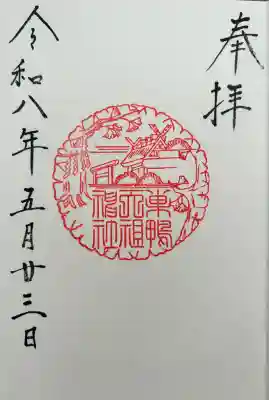 奉拝
東鴨天祖神社
令和八年五月廿三日